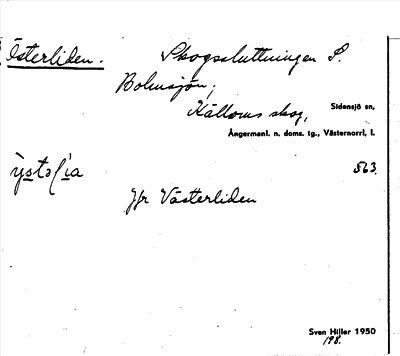 Österliden. Skogssluttningen S.
Bolmsjön;
Källoms skog, Sidensjö sn,
Ångermanl. n. doms. tg., Västernorrl. l.
563.
Jfr Västerliden
Sven Hiller 1950
198.